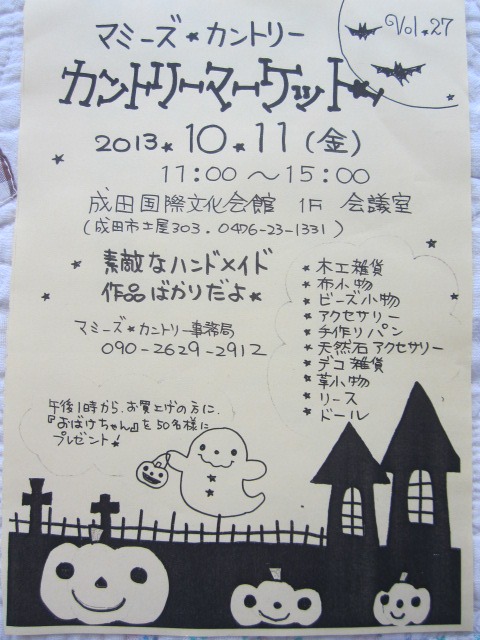 Vol.27
マミーズ★カントリー
カントリーマーケット
2013★10★11(金)
11:00～15:00
成田国際文化会館 1F 会議室
(成田市土屋303. 0476-23-1331)
★素敵なハンドメイド
作品ばかりだよ★
マミーズ★カントリー事務局
090-2629-2912
★木工雑貨
★布小物
★ビーズ小物
★アクセサリー
★手作りパン
★天然石アクセサリー
★デコ雑貨
★革小物
★リース
★ドール
午後1時から、お買上げの方に、
『おばけちゃん』を50名様に
プレゼント!